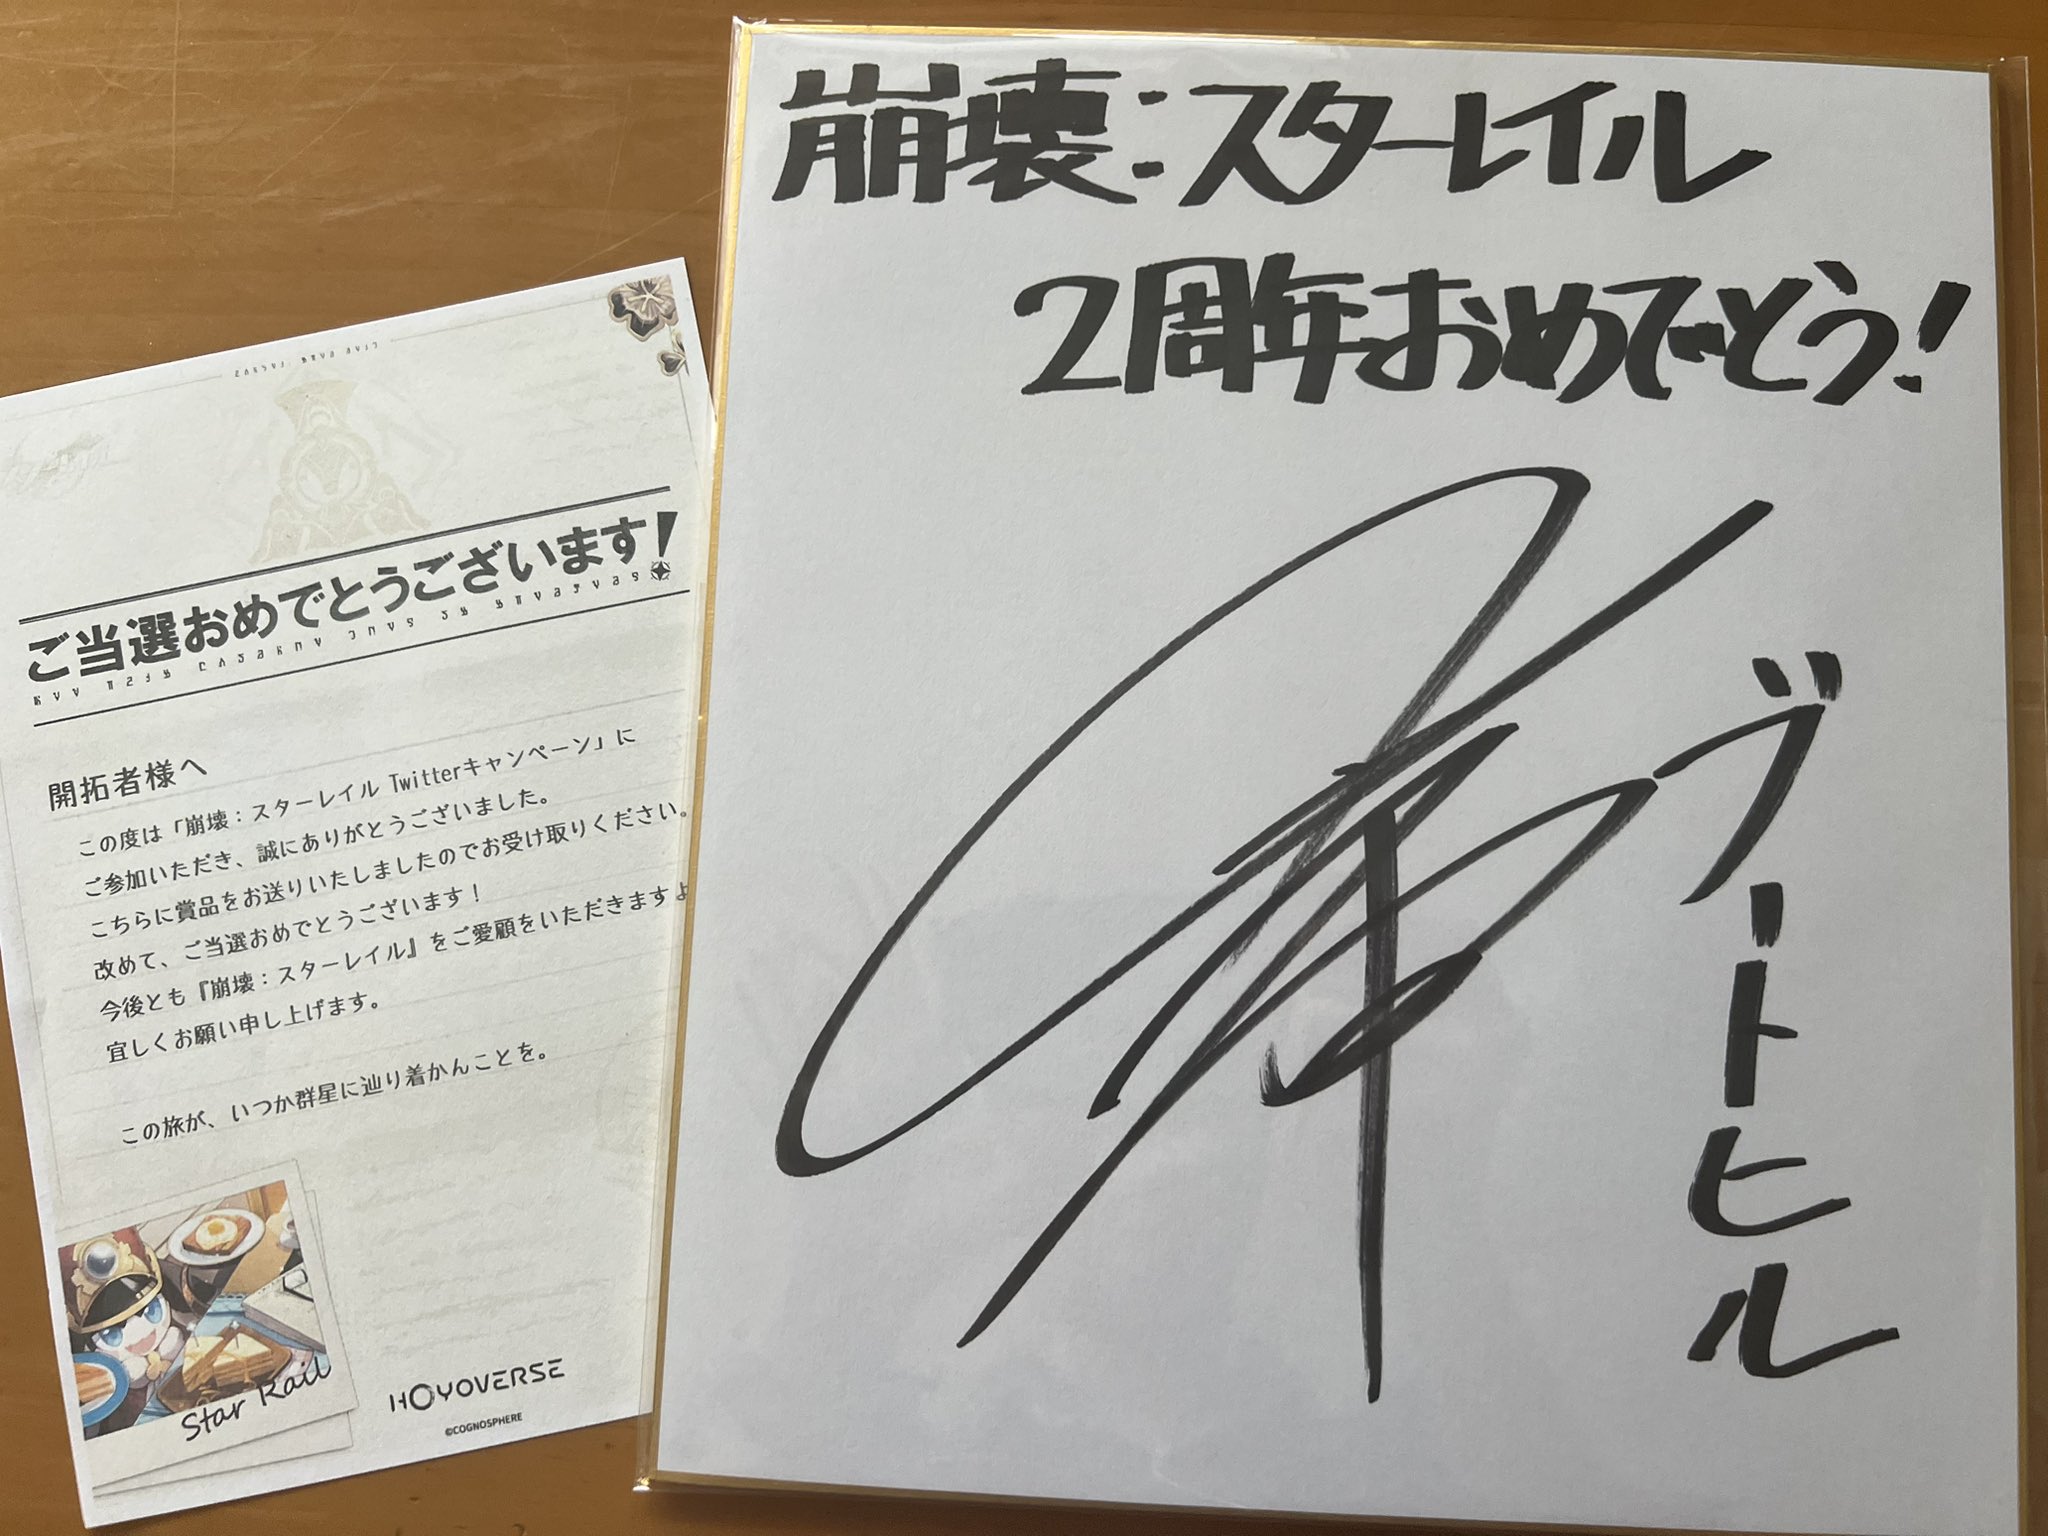 ご当選おめでとうございます!
開拓者様へ
この度は「崩壊:スターレイル Twitterキャンペーン」に
ご参加いただき、誠にありがとうございました。
こちらに賞品をお送りいたしましたのでお受け取りください。
改めて、ご当選おめでとうございます!
今後とも『崩壊:スターレイル』をご愛顧をいただきますよ
宜しくお願い申し上げます。
この旅が、いつか群星に辿り着かんことを。
Star Rail
HOYOVERSE
©COGNOSPHERE
崩壊:スターレイル
2周年おめでとう!
ブートヒル